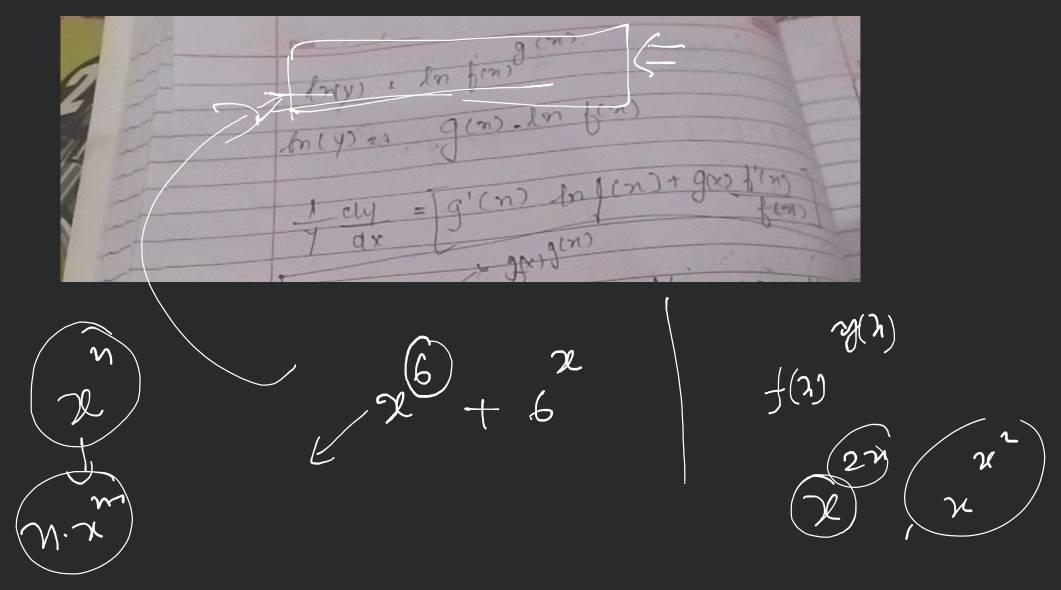 ln(y) = ln f(x)^g(x)
ln(y) = g(x) . ln f(x)
1/y dy/dx = [g'(x) ln f(x) + g(x) f'(x)/f(x)]
g(x)
x^n
n.x^n
x^6 + 6^x
f(x)^g(x)
x^2x
x^x^2